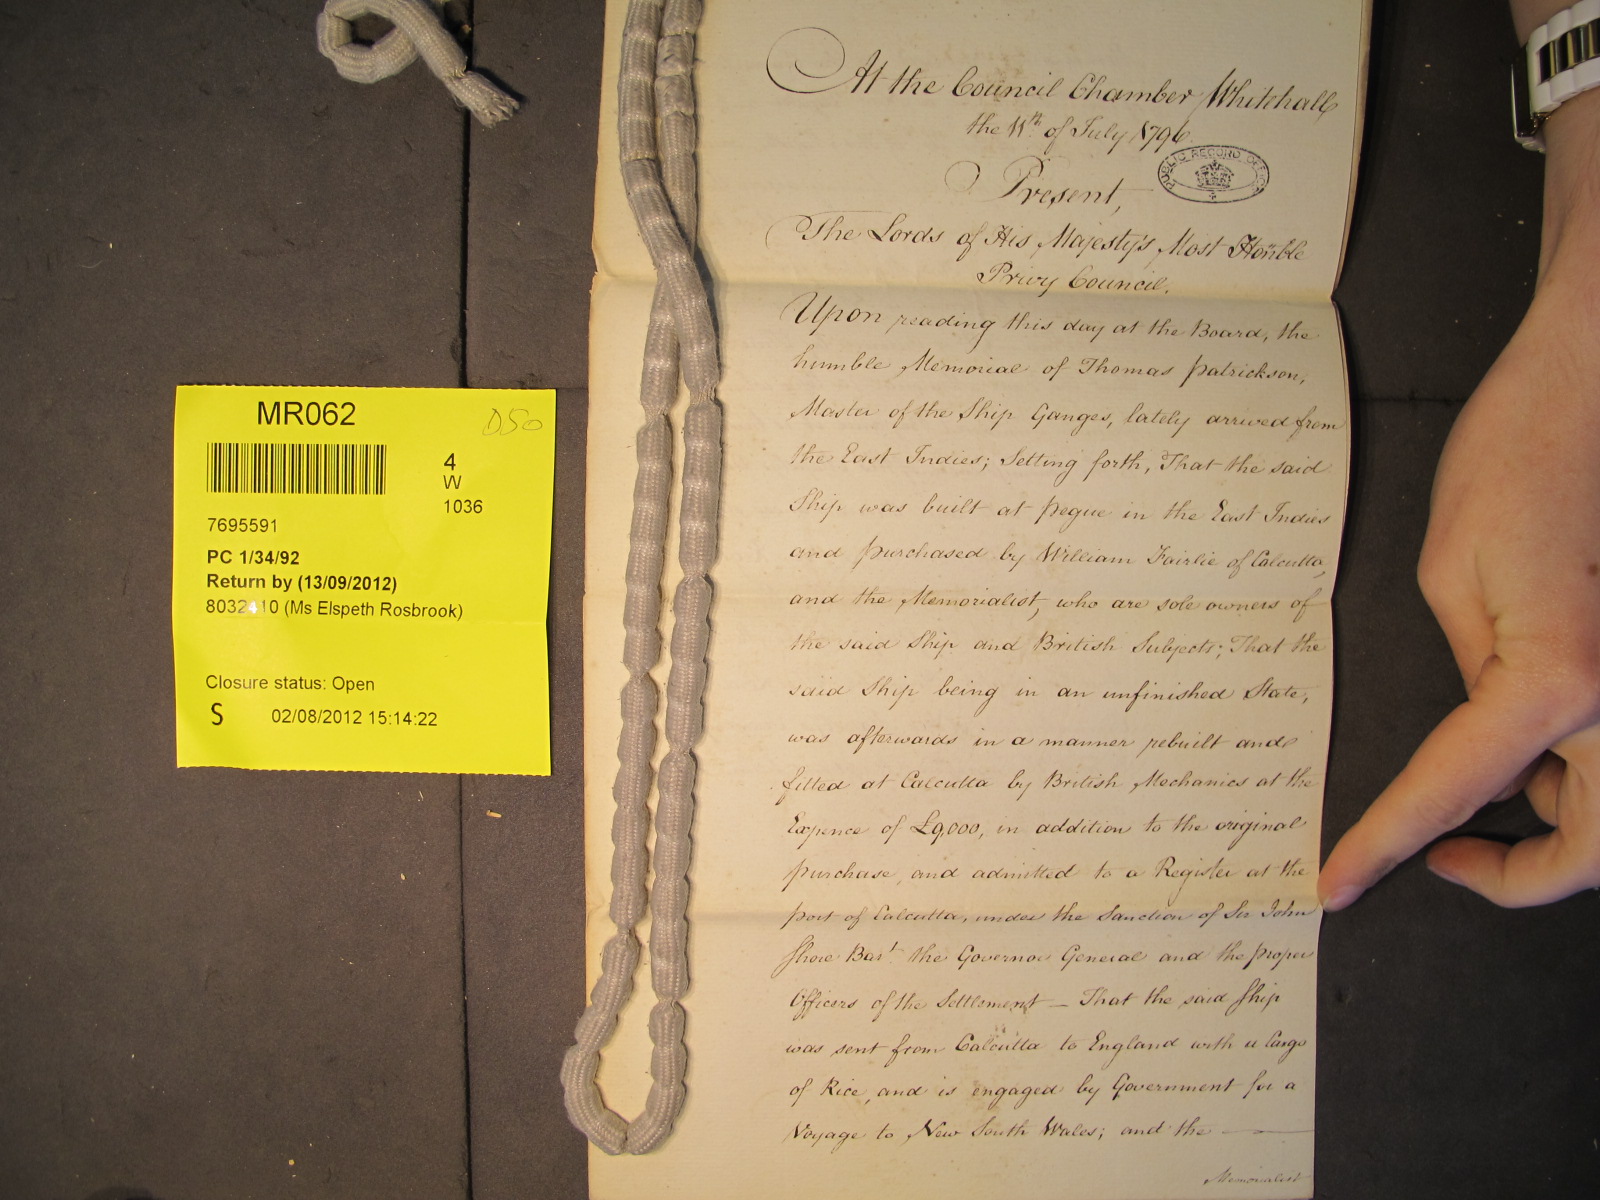 MR062
DSO
4
W
1036
7695591
PC 1/34/92
Return by (13/09/2012)
8032410 (Ms Elspeth Rosbrook)
Closure status: Open
S 02/08/2012 15:14:22
At the Council Chamber Whitehall
the 11th of July 1796
PUBLIC RECORD OFFICE
Present,
The Lords of His Majesty's Most Honble
Privy Council.
Upon reading this day at the Board, the
humble Memorial of Thomas Patrickson,
Master of the Ship Ganges, lately arrived from
the East Indies; Setting forth, That the said
Ship was built at Pegue in the East Indies
and purchased by William Fairlie of Calcutta,
and the Memorialist, who are sole owners of
the said Ship and British Subjects; That the
said Ship being in an unfinished State,
was afterwards in a manner rebuilt and
fitted at Calcutta by British Mechanics at the
Expence of £9,000, in addition to the original
purchase, and admitted to a Register at the
port of Calcutta, under the Sanction of Sir John
Shore Bart the Governor General and the proper
Officers of the Settlement — That the said Ship
was sent from Calcutta to England with a Cargo
of Rice, and is engaged by Government for a
Voyage to New South Wales; and the —
Memorialist